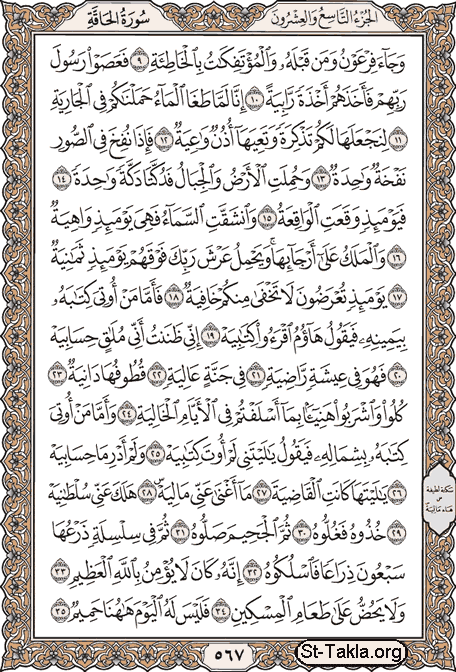 الجزء التاسع والعشرون
سورة الحاقة
وَجَآءَ فِرْعَوْنُ وَمَن قَبْلَهُۥ وَٱلْمُؤْتَفِكَٰتُ بِٱلْخَاطِئَةِ ۝٩ فَعَصَوْا۟ رَسُولَ
رَبِّهِمْ فَأَخَذَهُمْ أَخْذَةً رَّابِيَةً ۝١٠ إِنَّا لَمَّا طَغَا ٱلْمَآءُ حَمَلْنَٰكُمْ فِى ٱلْجَارِيَةِ
۝١١ لِنَجْعَلَهَا لَكُمْ تَذْكِرَةً وَتَعِيَهَآ أُذُنٌ وَٰعِيَةٌ ۝١٢ فَإِذَا نُفِخَ فِى ٱلصُّورِ
نَفْخَةٌ وَٰحِدَةٌ ۝١٣ وَحُمِلَتِ ٱلْأَرْضُ وَٱلْجِبَالُ فَدُكَّتَا دَكَّةً وَٰحِدَةً ۝١٤
فَيَوْمَئِذٍ وَقَعَتِ ٱلْوَاقِعَةُ ۝١٥ وَٱنشَقَّتِ ٱلسَّمَآءُ فَهِىَ يَوْمَئِذٍ وَاهِيَةٌ
۝١٦ وَٱلْمَلَكُ عَلَىٰٓ أَرْجَآئِهَا ۚ وَيَحْمِلُ عَرْشَ رَبِّكَ فَوْقَهُمْ يَوْمَئِذٍ ثَمَٰنِيَةٌ
۝١٧ يَوْمَئِذٍ تُعْرَضُونَ لَا تَخْفَىٰ مِنكُمْ خَافِيَةٌ ۝١٨ فَأَمَّا مَنْ أُوتِىَ كِتَٰبَهُۥ
بِيَمِينِهِۦ فَيَقُولُ هَآؤُمُ ٱقْرَءُوا۟ كِتَٰبِيَهْ ۝١٩ إِنِّى ظَنَنتُ أَنِّى مُلَٰقٍ حِسَابِيَهْ
۝٢٠ فَهُوَ فِى عِيشَةٍ رَّاضِيَةٍ ۝٢١ فِى جَنَّةٍ عَالِيَةٍ ۝٢٢ قُطُوفُهَا دَانِيَةٌ ۝٢٣
كُلُوا۟ وَٱشْرَبُوا۟ هَنِيٓـًٔۢا بِمَآ أَسْلَفْتُمْ فِى ٱلْأَيَّامِ ٱلْخَالِيَةِ ۝٢٤ وَأَمَّا مَنْ أُوتِىَ
كِتَٰبَهُۥ بِشِمَالِهِۦ فَيَقُولُ يَٰلَيْتَنِى لَمْ أُوتَ كِتَٰبِيَهْ ۝٢٥ وَلَمْ أَدْرِ مَا حِسَابِيَهْ
۝٢٦ يَٰلَيْتَهَا كَانَتِ ٱلْقَاضِيَةَ ۝٢٧ مَآ أَغْنَىٰ عَنِّى مَالِيَهْ ۜ ۝٢٨ هَلَكَ عَنِّى سُلْطَٰنِيَهْ
۝٢٩ خُذُوهُ فَغُلُّوهُ ۝٣٠ ثُمَّ ٱلْجَحِيمَ صَلُّوهُ ۝٣١ ثُمَّ فِى سِلْسِلَةٍ ذَرْعُهَا
سَبْعُونَ ذِرَاعًا فَٱسْلُكُوهُ ۝٣٢ إِنَّهُۥ كَانَ لَا يُؤْمِنُ بِٱللَّهِ ٱلْعَظِيمِ ۝٣٣
وَلَا يَحُضُّ عَلَىٰ طَعَامِ ٱلْمِسْكِينِ ۝٣٤ فَلَيْسَ لَهُ ٱلْيَوْمَ هَٰهُنَا حَمِيمٌ ۝٣٥
سكتة لطيفة
على
هاء مالية
٥٦٧
St-Takla.org